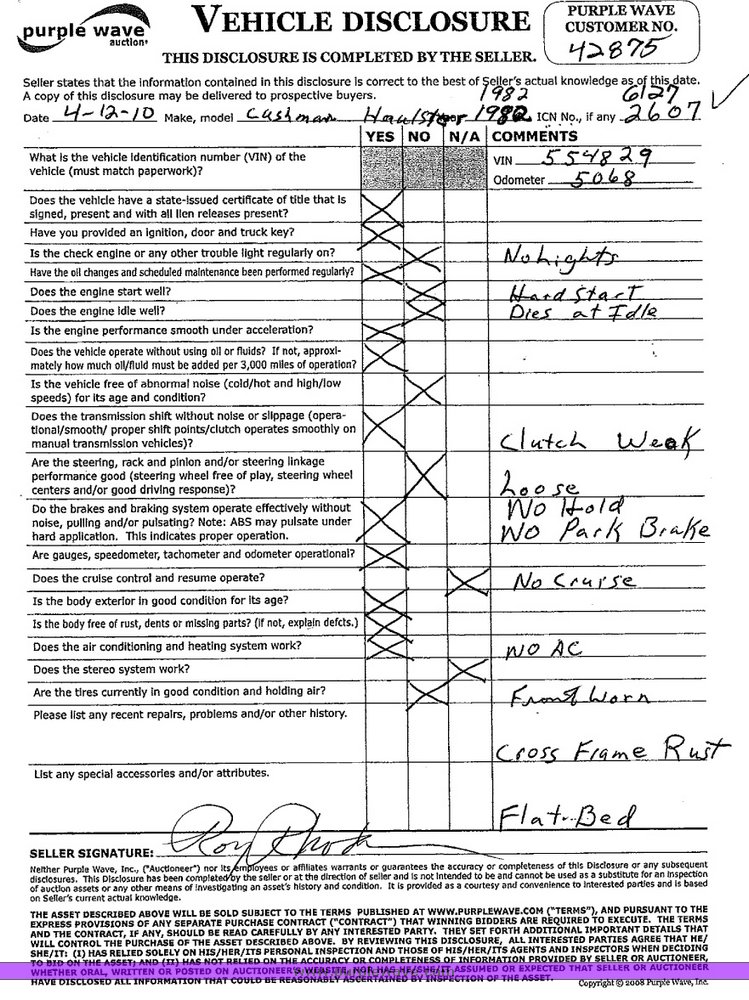 purple wave
auction
VEHICLE DISCLOSURE
THIS DISCLOSURE IS COMPLETED BY THE SELLER.
PURPLE WAVE
CUSTOMER NO.
42875
Seller states that the information contained in this disclosure is correct to the best of Seller's actual knowledge as of this date.
A copy of this disclosure may be delivered to prospective buyers. 1982 6127
Date 4-12-10 Make, model Cushman Haulster 1982 ICN No., if any 2607
YES NO N/A COMMENTS
What is the vehicle identification number (VIN) of the VIN 554829
vehicle (must match paperwork)? Odometer 5068
Does the vehicle have a state-issued certificate of title that is
signed, present and with all lien releases present?
Have you provided an ignition, door and truck key?
Is the check engine or any other trouble light regularly on? No Lights
Have the oil changes and scheduled maintenance been performed regularly?
Does the engine start well? Hard Start
Does the engine idle well? Dies at Idle
Is the engine performance smooth under acceleration?
Does the vehicle operate without using oil or fluids? If not, approxi-
mately how much oil/fluid must be added per 3,000 miles of operation?
Is the vehicle free of abnormal noise (cold/hot and high/low
speeds) for its age and condition?
Does the transmission shift without noise or slippage (opera-
tional/smooth/ proper shift points/clutch operates smoothly on
manual transmission vehicles)? Clutch Weak
Are the steering, rack and pinion and/or steering linkage
performance good (steering wheel free of play, steering wheel
centers and/or good driving response)? Loose
Do the brakes and braking system operate effectively without No Hold
noise, pulling and/or pulsating? Note: ABS may pulsate under
hard application. This indicates proper operation. No Park Brake
Are gauges, speedometer, tachometer and odometer operational?
Does the cruise control and resume operate? No Cruise
Is the body exterior in good condition for its age?
Is the body free of rust, dents or missing parts? (if not, explain defcts.)
Does the air conditioning and heating system work? NO AC
Does the stereo system work?
Are the tires currently in good condition and holding air? Front Worn
Please list any recent repairs, problems and/or other history.
Cross Frame Rust
List any special accessories and/or attributes.
Flat-Bed
SELLER SIGNATURE:
Neither Purple Wave, Inc., ("Auctioneer") nor its employees or affiliates warrants or guarantees the accuracy or completeness of this Disclosure or any subsequent
disclosures. This Disclosure has been completed by the seller or at the direction of seller and is not intended to be and cannot be used as a substitute for an inspection
of auction assets or any other means of investigating an asset's history and condition. It is provided as a courtesy and convenience to interested parties and is based
on Seller's current actual knowledge.
THE ASSET DESCRIBED ABOVE WILL BE SOLD SUBJECT TO THE TERMS PUBLISHED AT WWW.PURPLEWAVE.COM ("TERMS"), AND PURSUANT TO THE
EXPRESS PROVISIONS OF ANY SEPARATE PURCHASE CONTRACT ("CONTRACT") THAT WINNING BIDDERS ARE REQUIRED TO EXECUTE. THE TERMS
AND THE CONTRACT, IF ANY, SHOULD BE READ CAREFULLY BY ANY INTERESTED PARTY. THEY SET FORTH ADDITIONAL IMPORTANT DETAILS THAT
WILL CONTROL THE PURCHASE OF THE ASSET DESCRIBED ABOVE. BY REVIEWING THIS DISCLOSURE, ALL INTERESTED PARTIES AGREE THAT HE/
SHE/IT: (I) HAS RELIED SOLELY ON HIS/HER/ITS PERSONAL INSPECTION AND THOSE OF HIS/HER/ITS AGENTS AND INSPECTORS WHEN DECIDING
TO BID ON THE ASSET; AND (II) HAS NOT RELIED ON THE ACCURACY OR COMPLETENESS OF INFORMATION PROVIDED BY SELLER OR AUCTIONEER,
WHETHER ORAL, WRITTEN OR POSTED ON AUCTIONEER'S WEBSITE, NOR HAS HE/SHE/IT ASSUMED OR EXPECTED THAT SELLER OR AUCTIONEER
HAVE DISCLOSED ALL INFORMATION THAT COULD BE REASONABLY ASCERTAINED BY INSPECTION OF THE ASSET.
Copyright © 2008 Purple Wave, Inc.